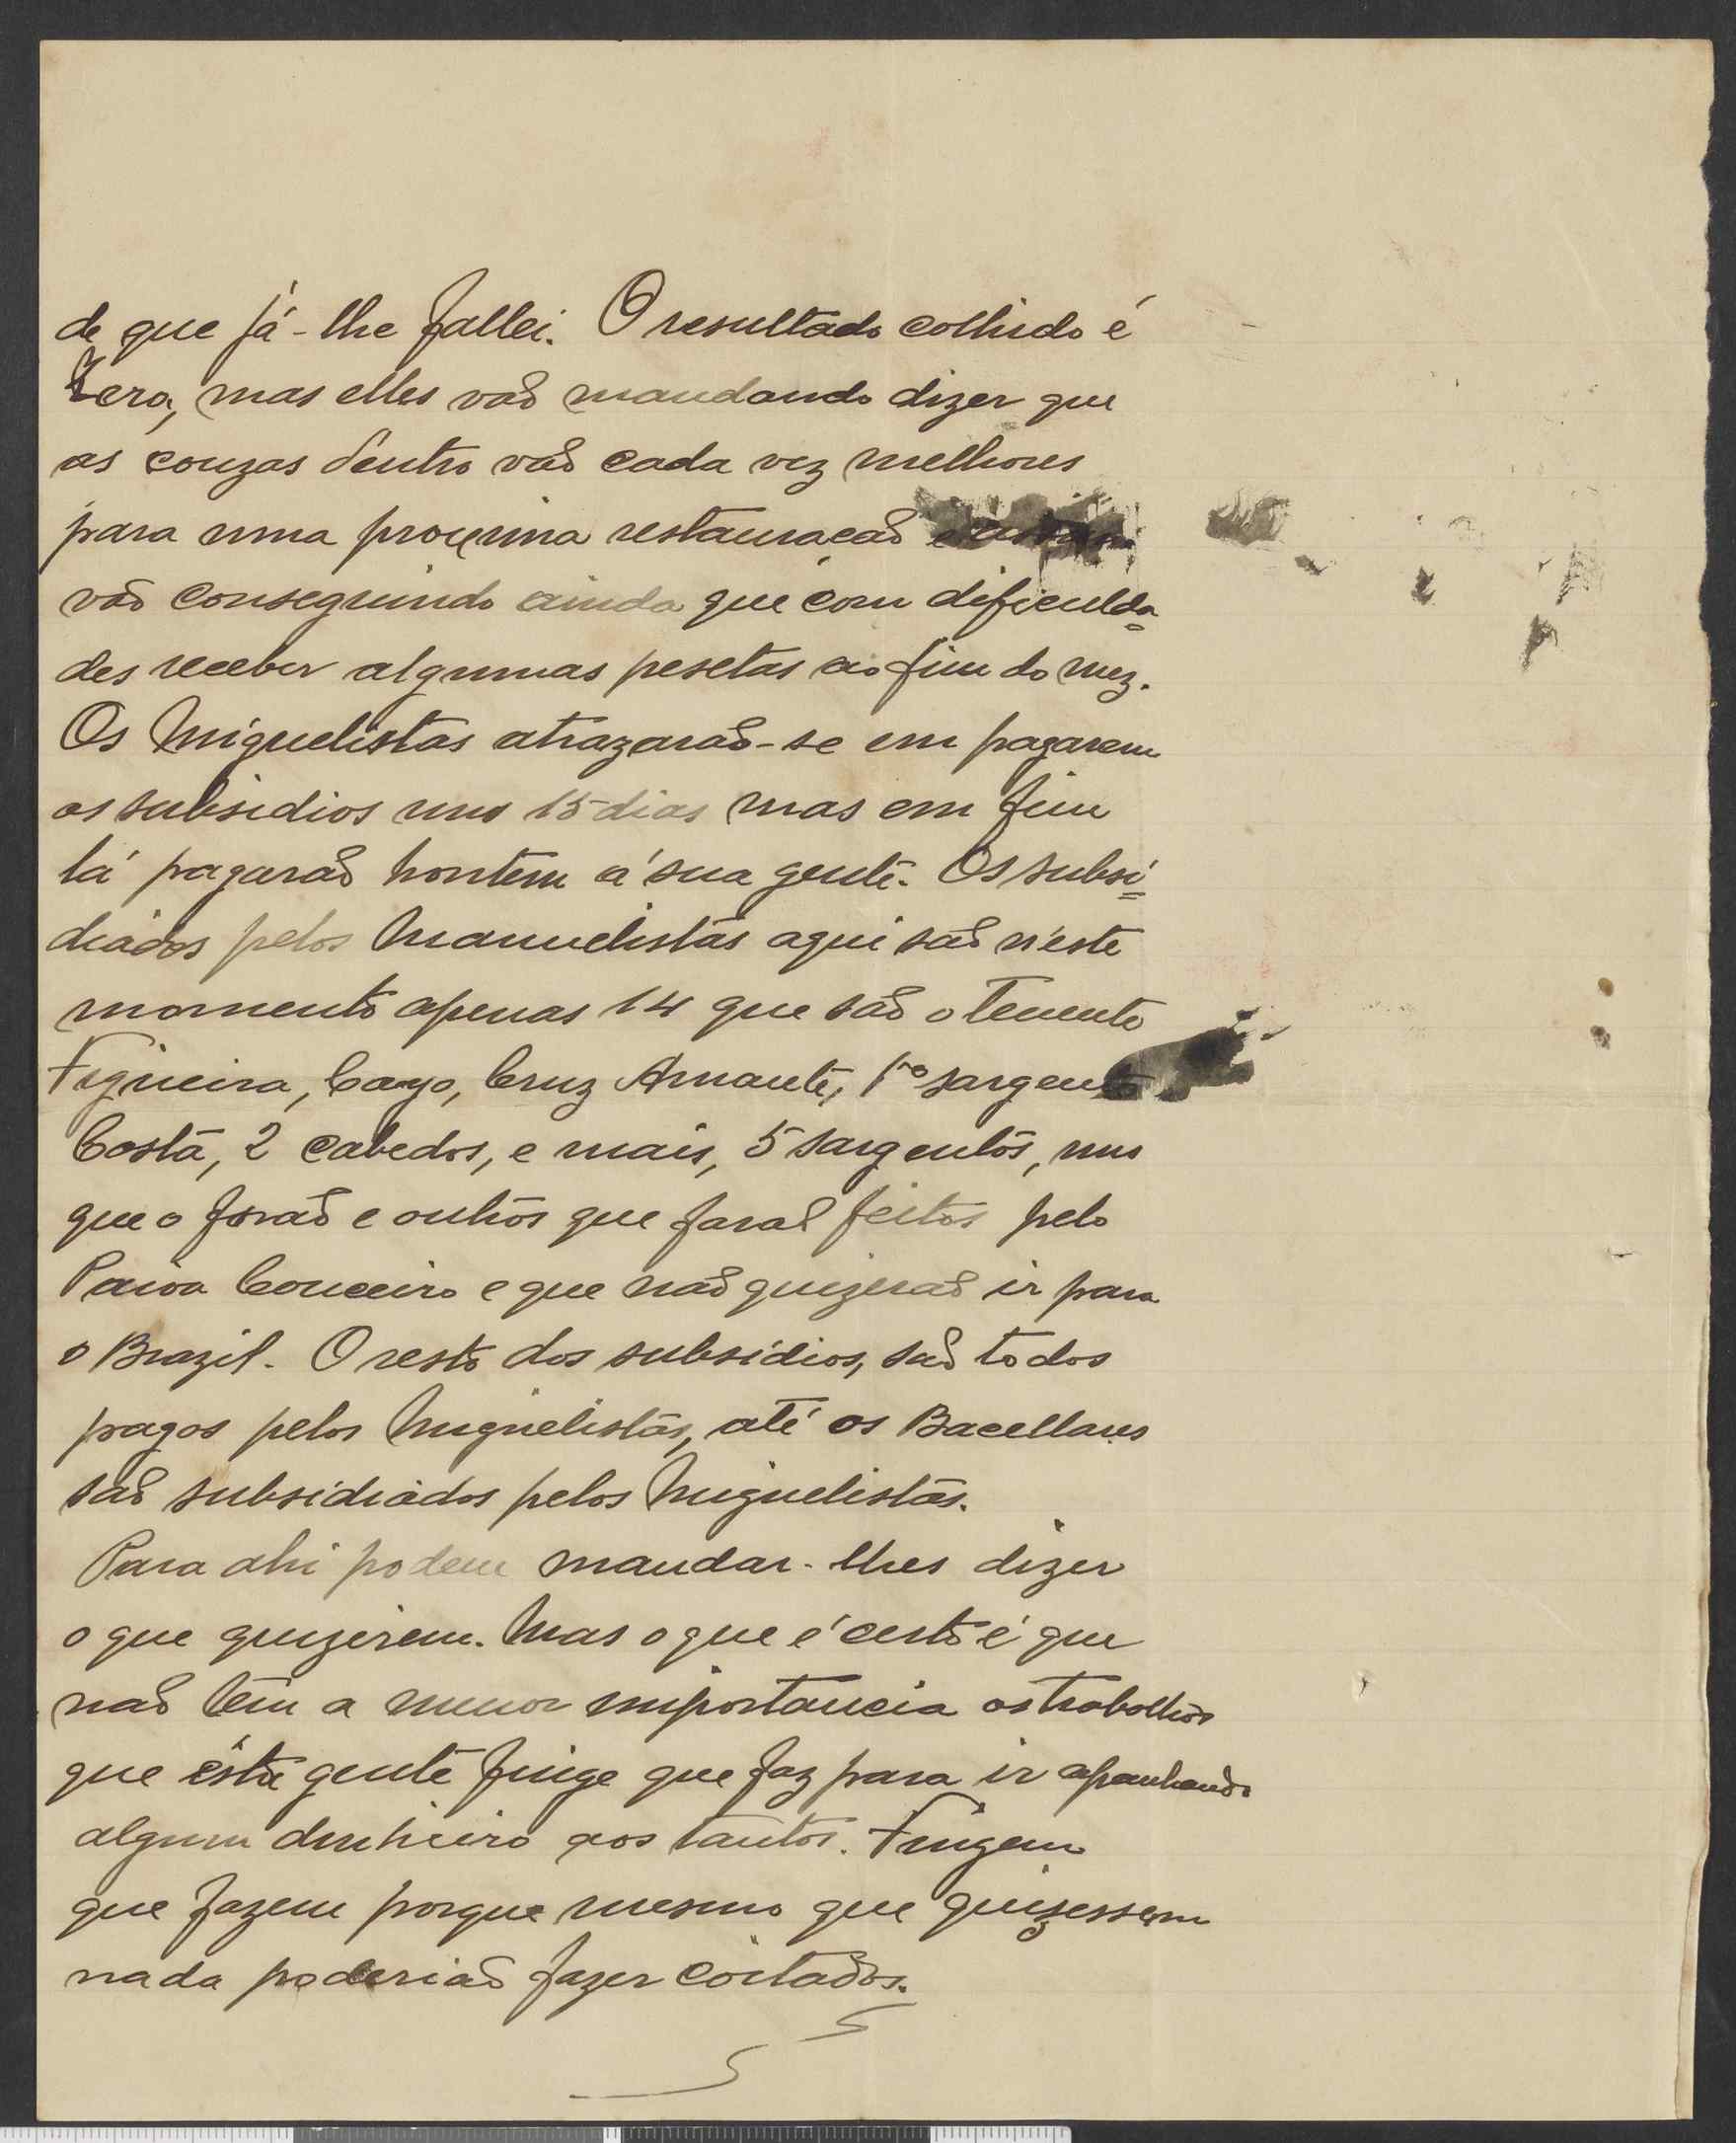 de que já-lhe fallei. O resultado colhido é
Zero, mas elles vaõ mandando dizer que
as couzas dentro vaõ cada vez melhores
para uma proxima restauraçaõ e assim
vaõ conseguindo ainda que com dificulda=
des receber algumas pesetas ao fim do mez.
Os Miguelistas atrazaraõ-se em pagarem
os subsidios uns 15 dias mas em fim
lá pagaraõ hontem á sua gente. Os subsi=
diados pelos Manuelistas aqui saõ n'este
momento apenas 14 que saõ o Tenente
Figueira, Cayo, Cruz Amante, 1ro sargento
Costa, 2 Cabedos, e mais, 5 sargentos, uns
que o foraõ e outros que foraõ feitos pelo
Paiva Couceiro e que naõ quizeraõ ir para
o Brazil. O resto dos subsidios, saõ todos
pagos pelos Miguelistas, até os Bacellares
saõ subsidiados pelos Miguelistas.
Para ahi podem mandar-lhes dizer
o que quizerem. Mas o que é certo é que
naõ tem a menor importancia os trabalhos
que esta gente finge que faz para ir apanhando
algum dinheiro aos tantos. Fingem
que fazem porque mesmo que quizessem
nada poderiaõ fazer coitados.